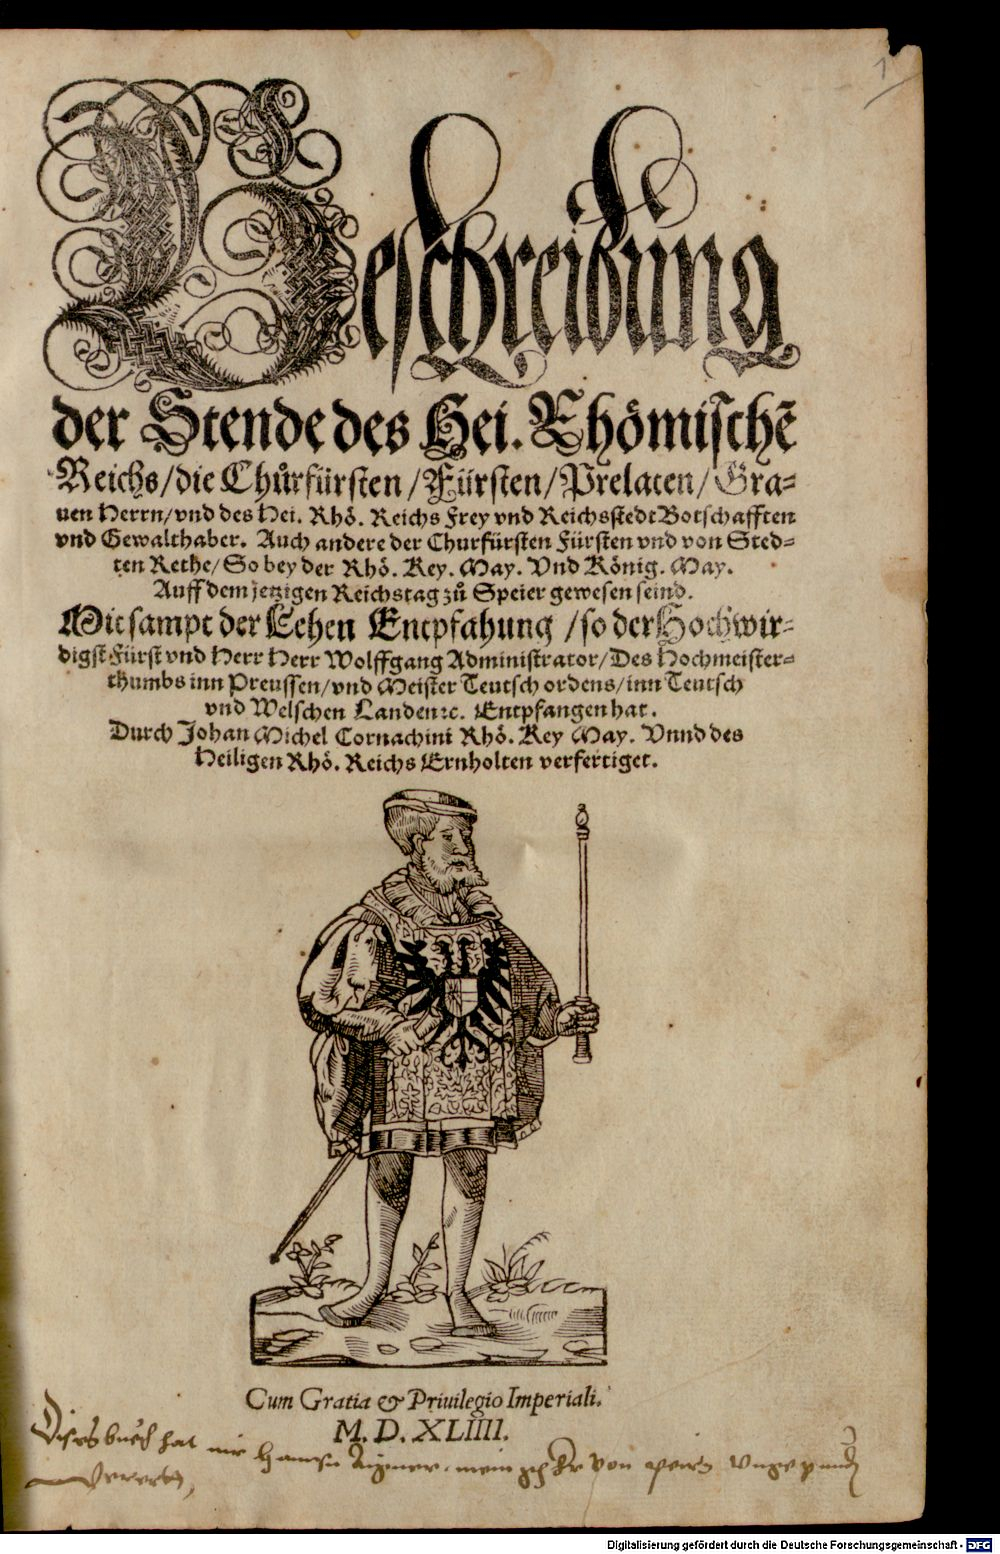 1
Beschreibung
der Stende des Hei. Rhömischē
Reichs/die Chůrfürsten/Fürsten/Prelaten/Gra⸗
uen Herrn/vnd des Hei. Rhö. Reichs Frey vnd Reichsstedt Botschafften
vnd Gewalthaber. Auch andere der Churfürsten Fürsten vnd von Sted⸗
ten Rethe/So bey der Rhö. Key. May. Vnd König. May.
Auff dem jetzigen Reichstag zů Speier gewesen seind.
Mit sampt der Lehen Entpfahung/so der Hochwir⸗
digst Fürst vnd Herr Herr Wolffgang Administrator/Des Hochmeister⸗
thumbs inn Preussen/vnd Meister Teutsch ordens/inn Teutsch
vnd Welschen Landen ꝛc. Entpfangen hat.
Durch Johan Michel Cornachini Rhö. Key May. Vnnd des
Heiligen Rhö. Reichs Ernholten verfertiget.
Cum Gratia & Priuilegio Imperiali.
M. D. XLIIII.
Dises buech hat mir Hanns mein von
Vererth,
Digitalisierung gefördert durch die Deutsche Forschungsgemeinschaft - DFG